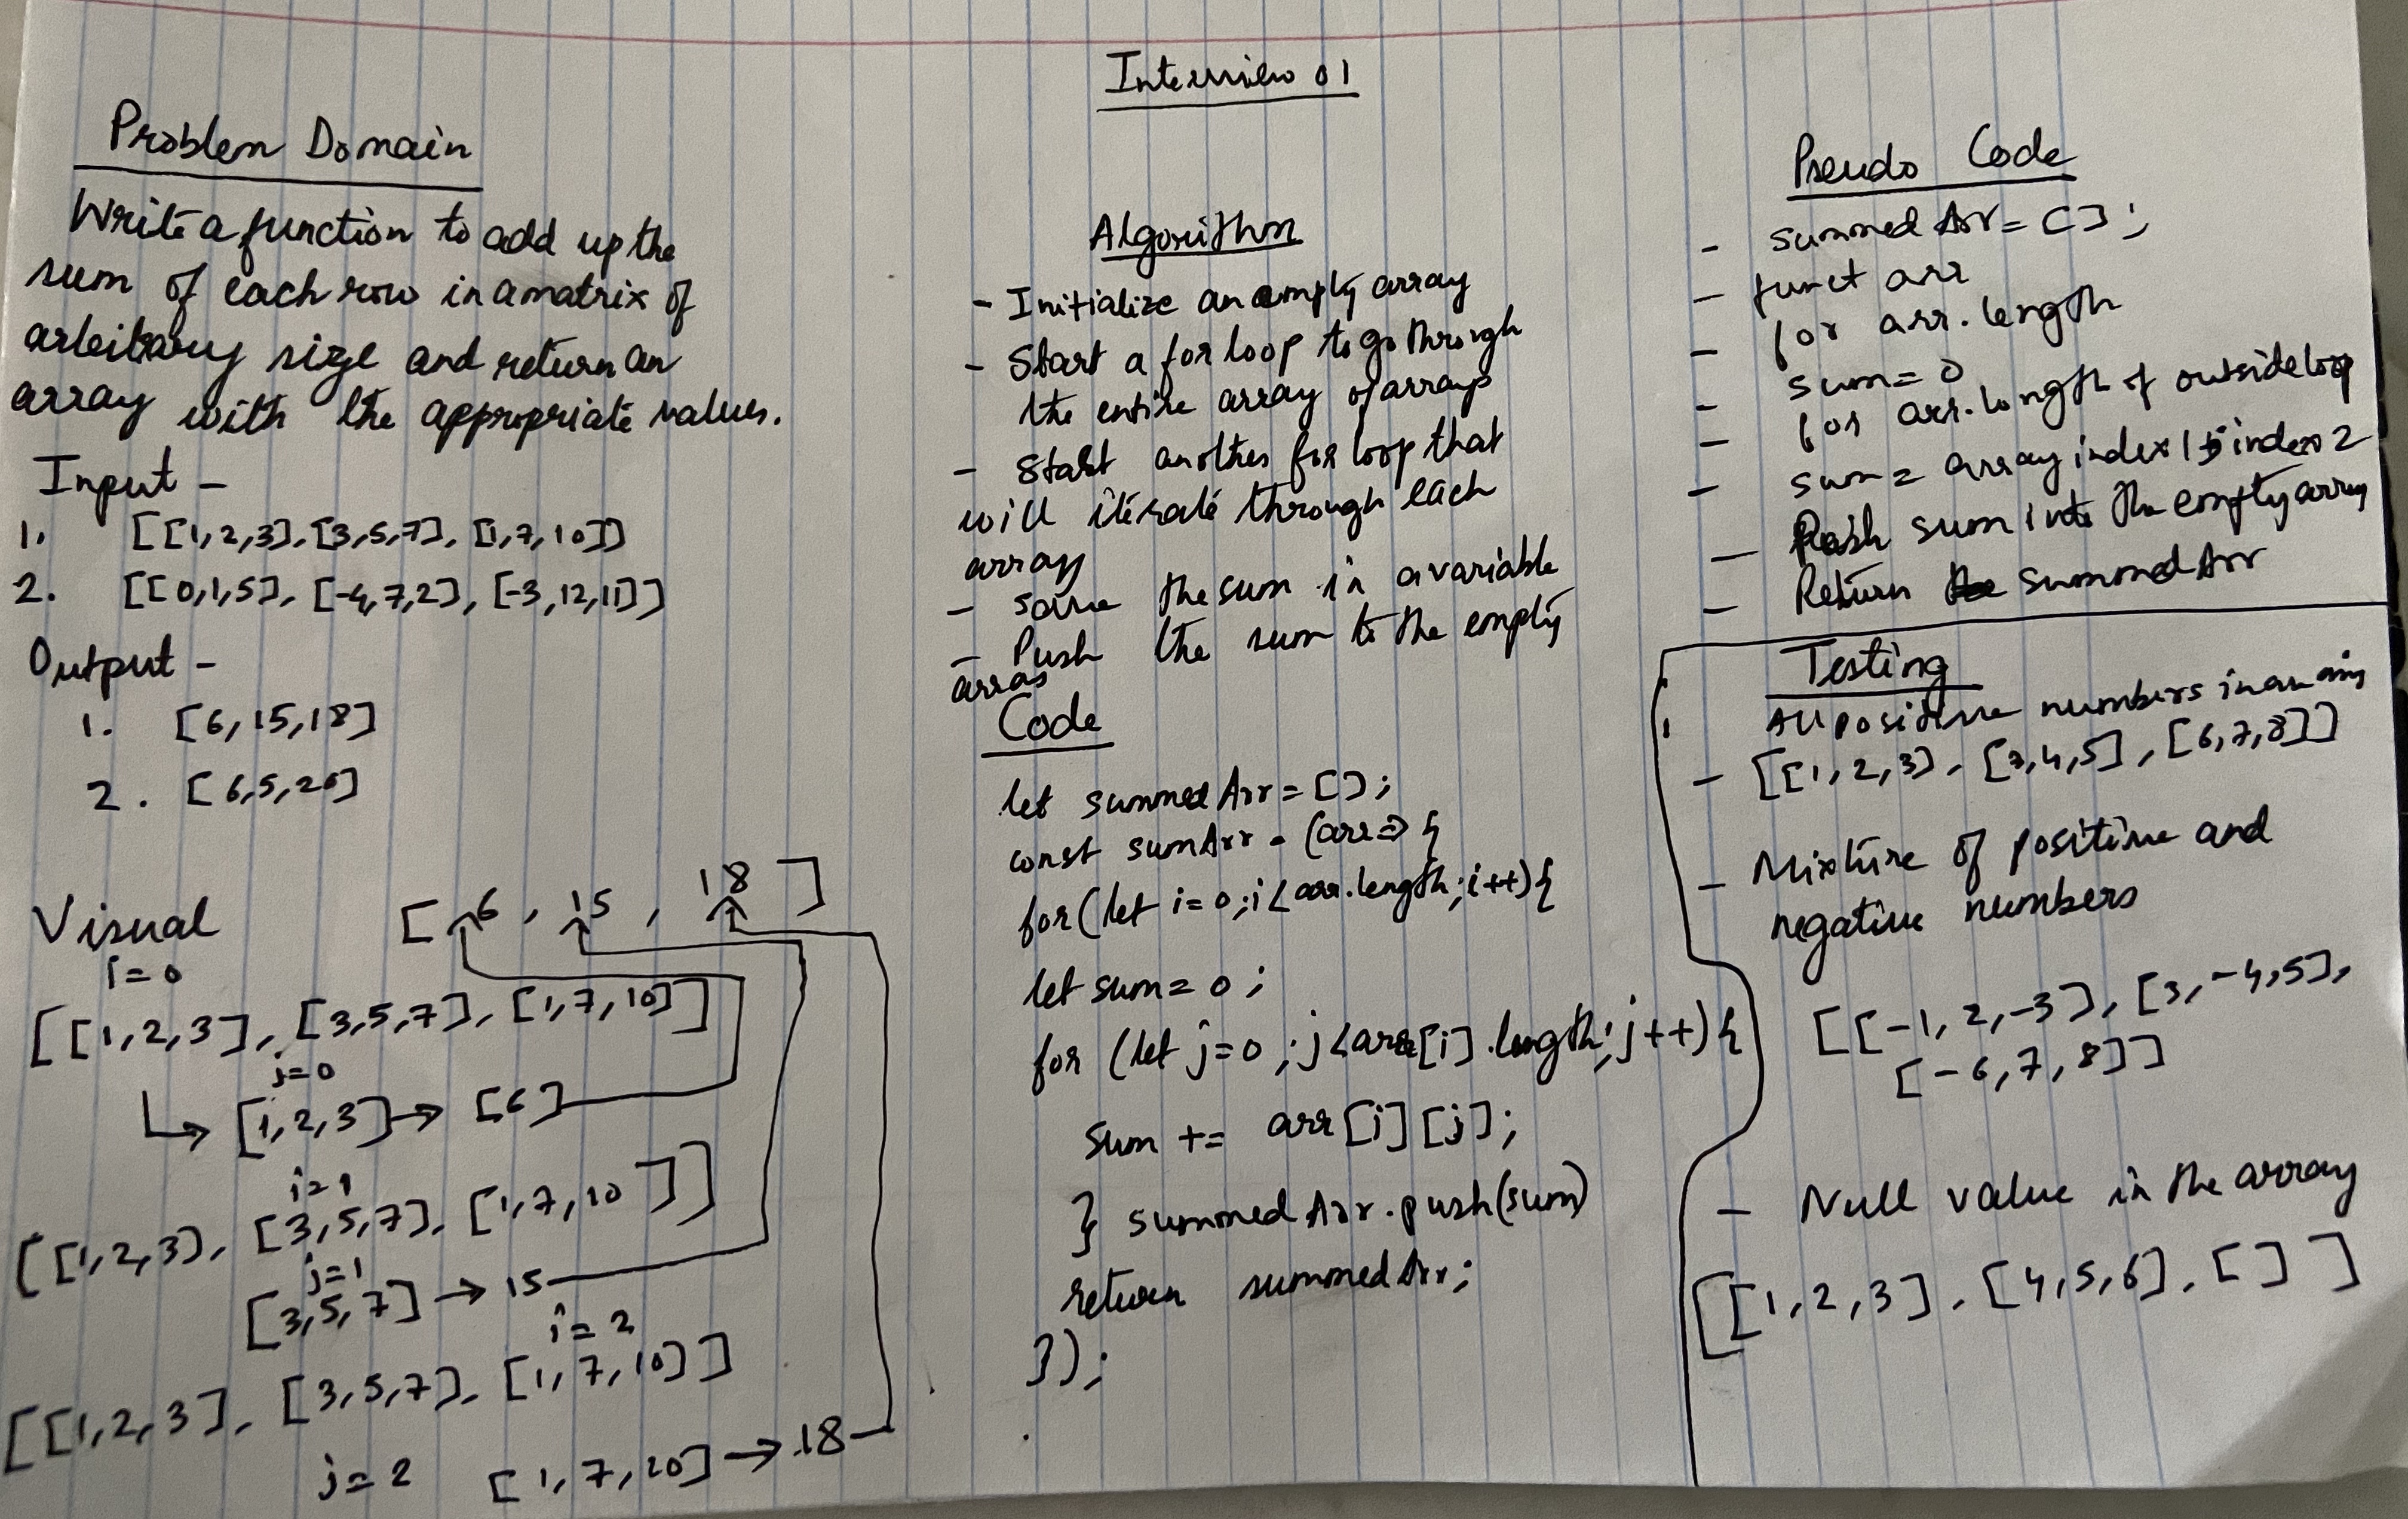 Interview 01
Problem Domain
Write a function to add up the
sum of each row in a matrix of
arbeitrary size and return an
array with the appropriate values.
Input -
1. [[1,2,3],[3,5,7],[1,7,10]]
2. [[0,1,5], [-4,7,2], [-3,12,11]]
Output -
1. [6,15,18]
2. [6,5,20]
Visual
[6, 15, 18]
i=0
[[1,2,3], [3,5,7], [1,7,10]]
j=0
[1,2,3] → [6]
i=1
[[1,2,3], [3,5,7], [1,7,10]]
j=1
[3,5,7] → 15
i=2
[[1,2,3], [3,5,7], [1,7,10]]
j=2 [1,7,10] → 18
Algorithm
- Initialize an empty array
- Start a for loop to go through
the entire array of arrays
- Start another for loop that
will iterate through each
array
- Save the sum in a variable
- Push the sum to the empty
array
Code
let summedArr = [];
const sumArr = (arr => {
for(let i=0; i<arr.length; i++){
let sum = 0;
for (let j=0; j<arr[i].length; j++){
sum += arr[i][j];
} summedArr.push(sum)
return summedArr;
});
Pseudo Code
- summedArr = [];
- funct arr
- for arr.length
- sum = 0
- for arr.length of outside loop
- sum = array index 1 index 2
- Push sum into the empty array
- Return summedArr
Testing
All positive numbers in an array
- [[1,2,3], [3,4,5], [6,7,8]]
- Mixture of positive and
negative numbers
[[-1,2,-3], [3,-4,5],
[-6,7,8]]
- Null value in the array
[[1,2,3], [4,5,6], []]